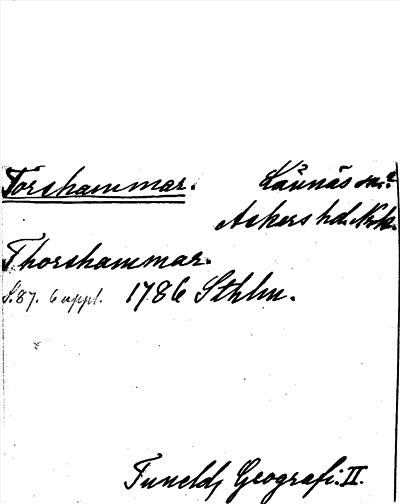 Torshammar. Lännäs sn.?
Askers hd. Nrk.
Thorshammar.
S. 87. 6 uppl. 1786 Sthlm.
Tunelds Geografi. II.